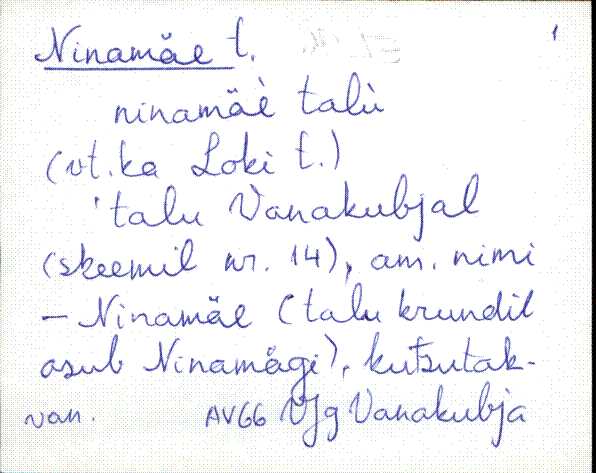 Ninamäe t. 1
ninamäè talù
(vt. ka Loki t.)
'talu Vanakubjal
(skeemil nr. 14), am. nimi
– Ninamäe (talu krundil
asub Ninamägi), kutsutak-
van. AV66 Vjg Vanakubja